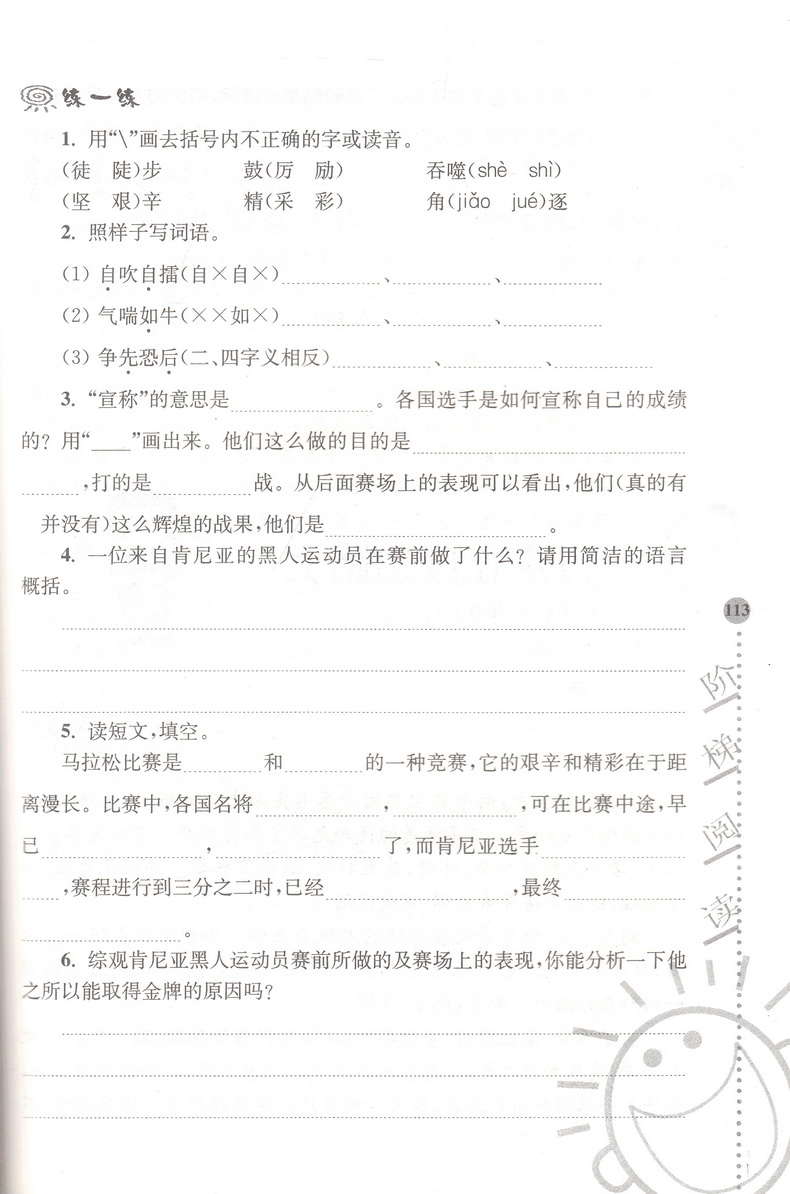 练一练
1. 用“\”画去括号内不正确的字或读音。
(徒 陡)步 鼓(厉 励) 吞噬(shè shì)
(坚 艰)辛 精(采 彩) 角(jiǎo jué)逐
2. 照样子写词语。
(1) 自吹自擂(自×自×)、、
(2) 气喘如牛(××如×)、、
(3) 争先恐后(二、四字义相反)、、
3. “宣称”的意思是 。各国选手是如何宣称自己的成绩
的? 用“____”画出来。他们这么做的目的是
,打的是 战。从后面赛场上的表现可以看出,他们(真的有
并没有)这么辉煌的战果,他们是 。
4. 一位来自肯尼亚的黑人运动员在赛前做了什么? 请用简洁的语言
概括。
5. 读短文,填空。
马拉松比赛是 和 的一种竞赛,它的艰辛和精彩在于距
离漫长。比赛中,各国名将 , ,可在比赛中途,早
已 , 了,而肯尼亚选手
,赛程进行到三分之二时,已经 ,最终
。
6. 综观肯尼亚黑人运动员赛前所做的及赛场上的表现,你能分析一下他
之所以能取得金牌的原因吗?
113
阶
梯
阅
读